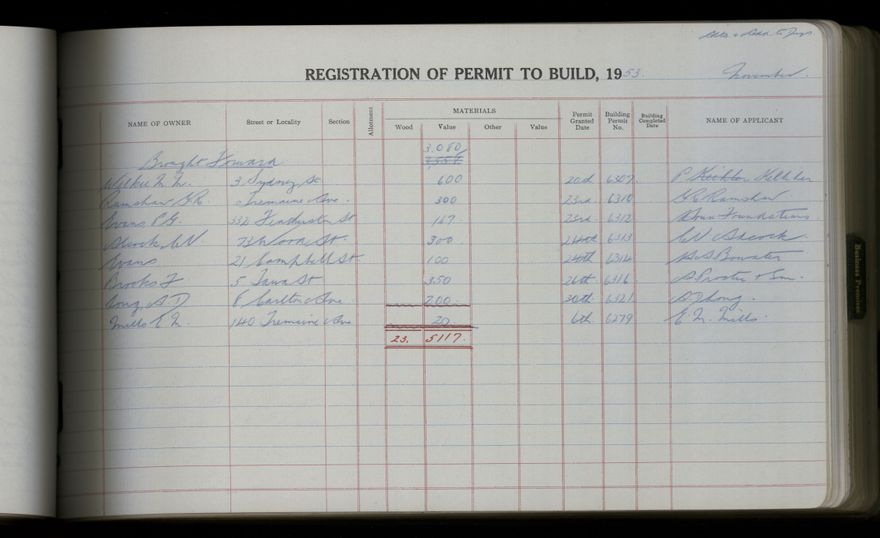 REGISTRATION OF PERMIT TO BUILD, 1953.
November.
NAME OF OWNER Street or Locality Section Allotment MATERIALS Permit Granted Date Building Permit No. Building Completed Date NAME OF APPLICANT
Wood Value Other Value
3,080
Brought Forward
Wilkie 3 Sydney St 600 20th 6307
Ramshaw G.R. Tremaine Ave. 300 23rd 6310 G.R. Ramshaw
Evans P.G. 392 Featherston St 167 23rd 6312 Foundations
Adcock, C.N. Wood St. 300 6313 C.N. Adcock
Evans 21 Campbell St 100 24th 6314 Bowater
Brooks F 5 St 350 26th 6316 Procter & Son.
Long A.D 8 Carlton Ave 200 30th 6321 A.D. Long.
Mills E.M. 140 Tremaine Ave 20 6th 6279 E.M. Mills.
23. 5117.
Business Premises